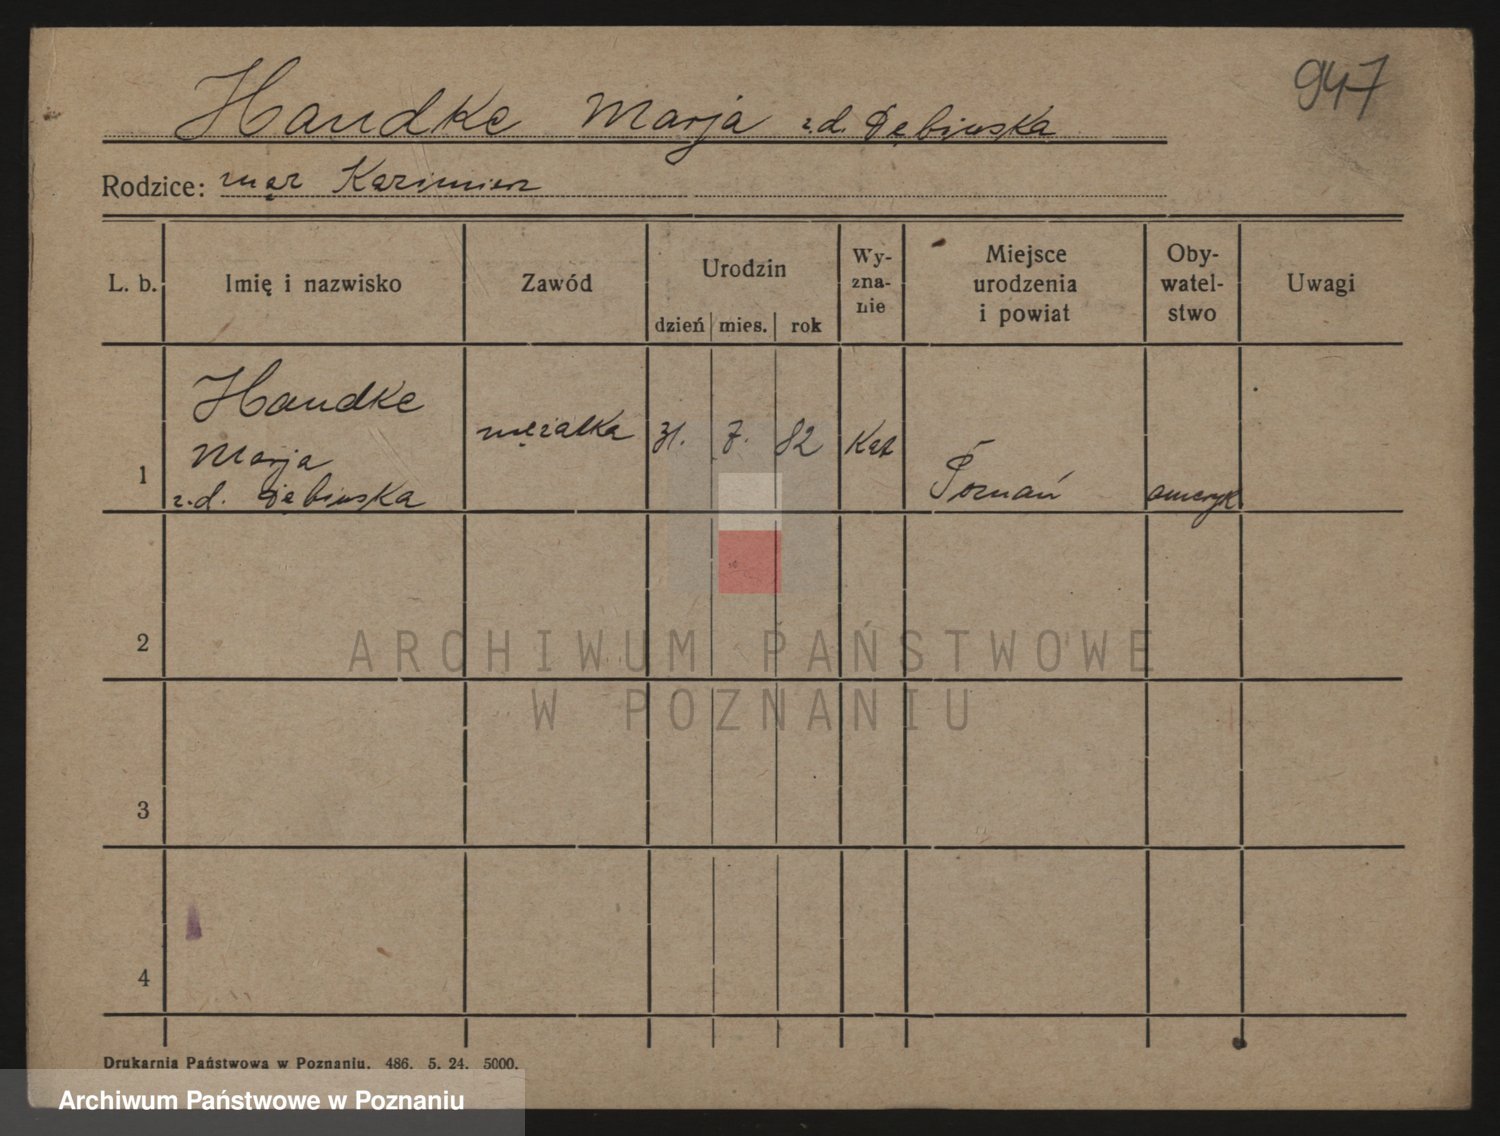 947
Handke Marja z.d. Dębińska
Rodzice: mąż Kazimierz
L. b. Imię i nazwisko Zawód Urodzin dzień mies. rok Wy-zna-nie Miejsce urodzenia i powiat Oby-watel-stwo Uwagi
1 Handke Marja z.d. Dębińska mężatka 31. 7. 82 Kat Poznań ameryk
2
3
4
ARCHIWUM PAŃSTWOWE
W POZNANIU
Drukarnia Państwowa w Poznaniu. 486. 5. 24. 5000.
Archiwum Państwowe w Poznaniu